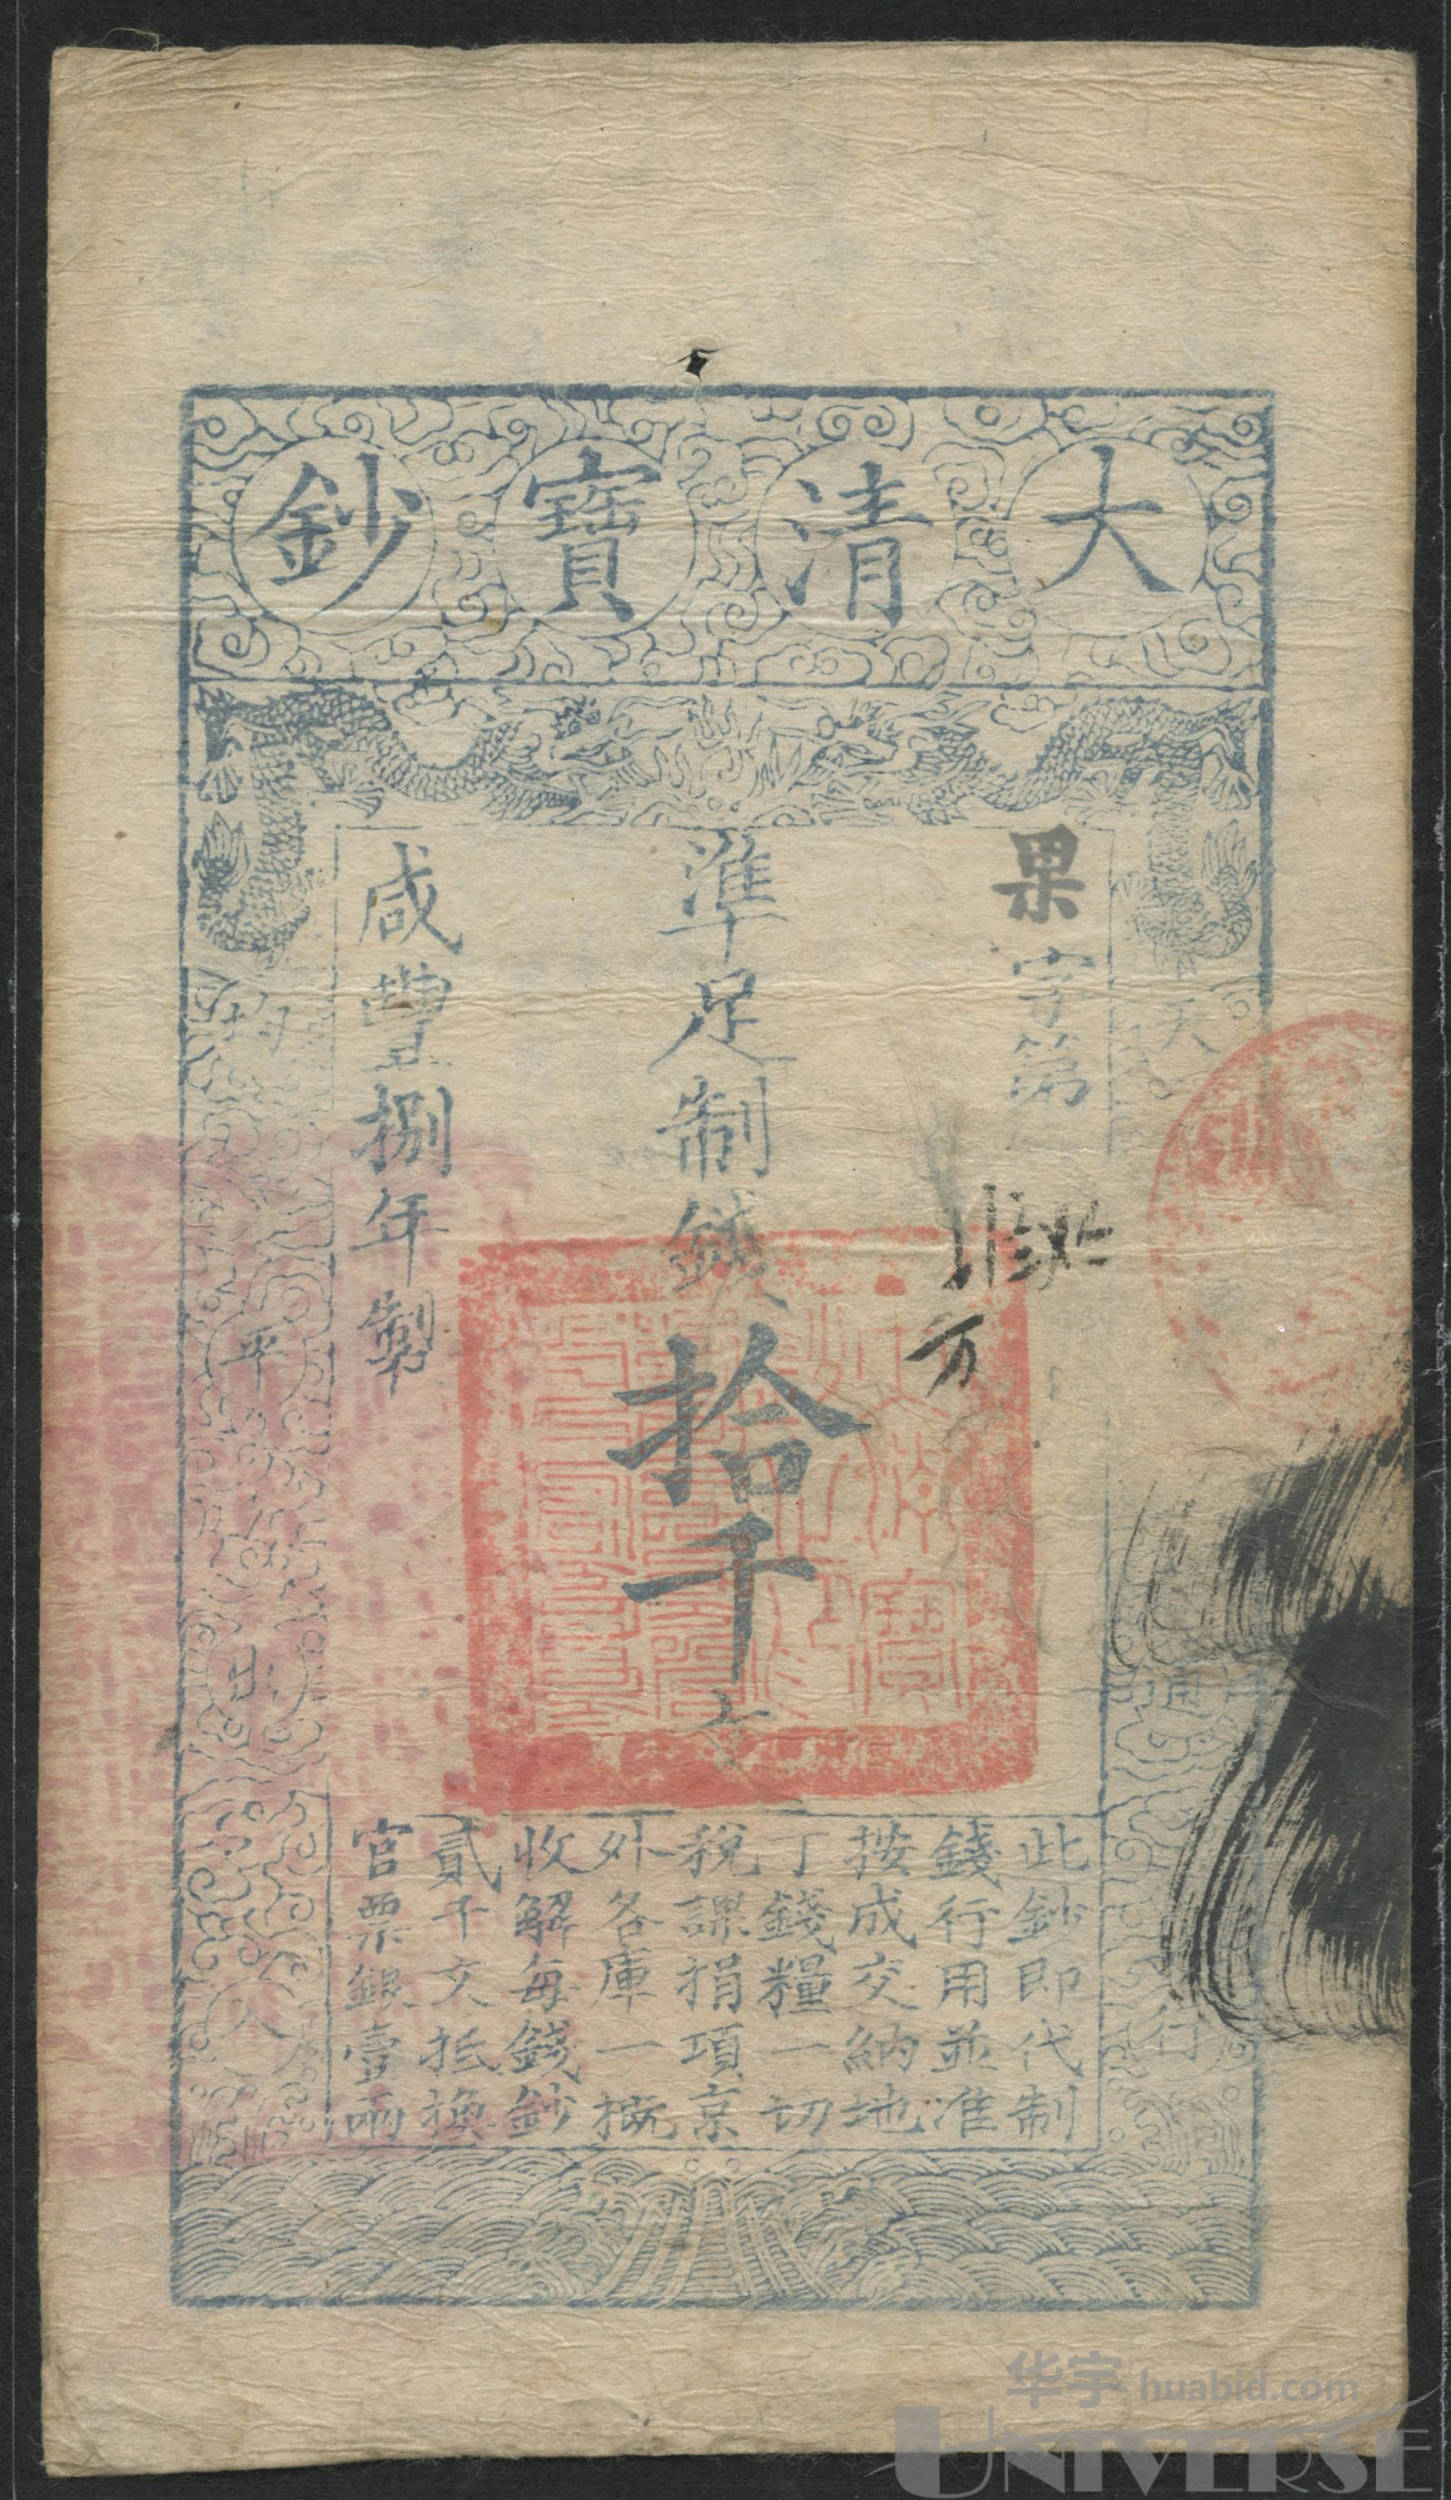 大清寶鈔
果字第
準足制錢拾千文
咸豐捌年製
天
通行
均
平
出
入
此鈔即代制
錢行用並准
按成交納地
丁錢糧一切
稅課捐項京
外各庫一概
收解每錢鈔
貳千文抵換
官票銀壹兩
华宇 huabid.com
UNIVERSE